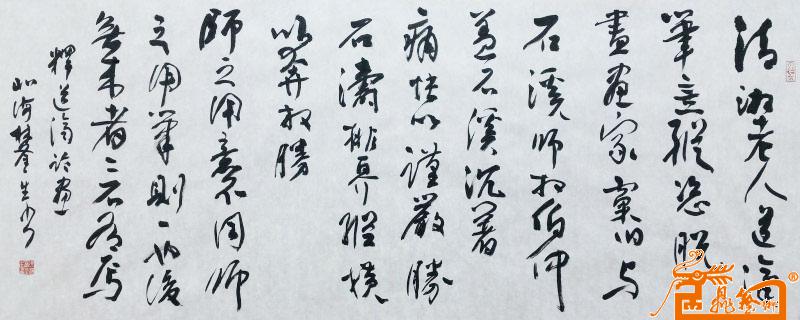 清湘老人道济
笔意纵恣脱
尽画家窠臼与
石溪师相伯仲
盖石溪沉著
痛快以谨严胜
石濤排奡纵横
以奔放胜
师之用意不同师
之用笔则一也后
无来者二石有焉
释道济论画